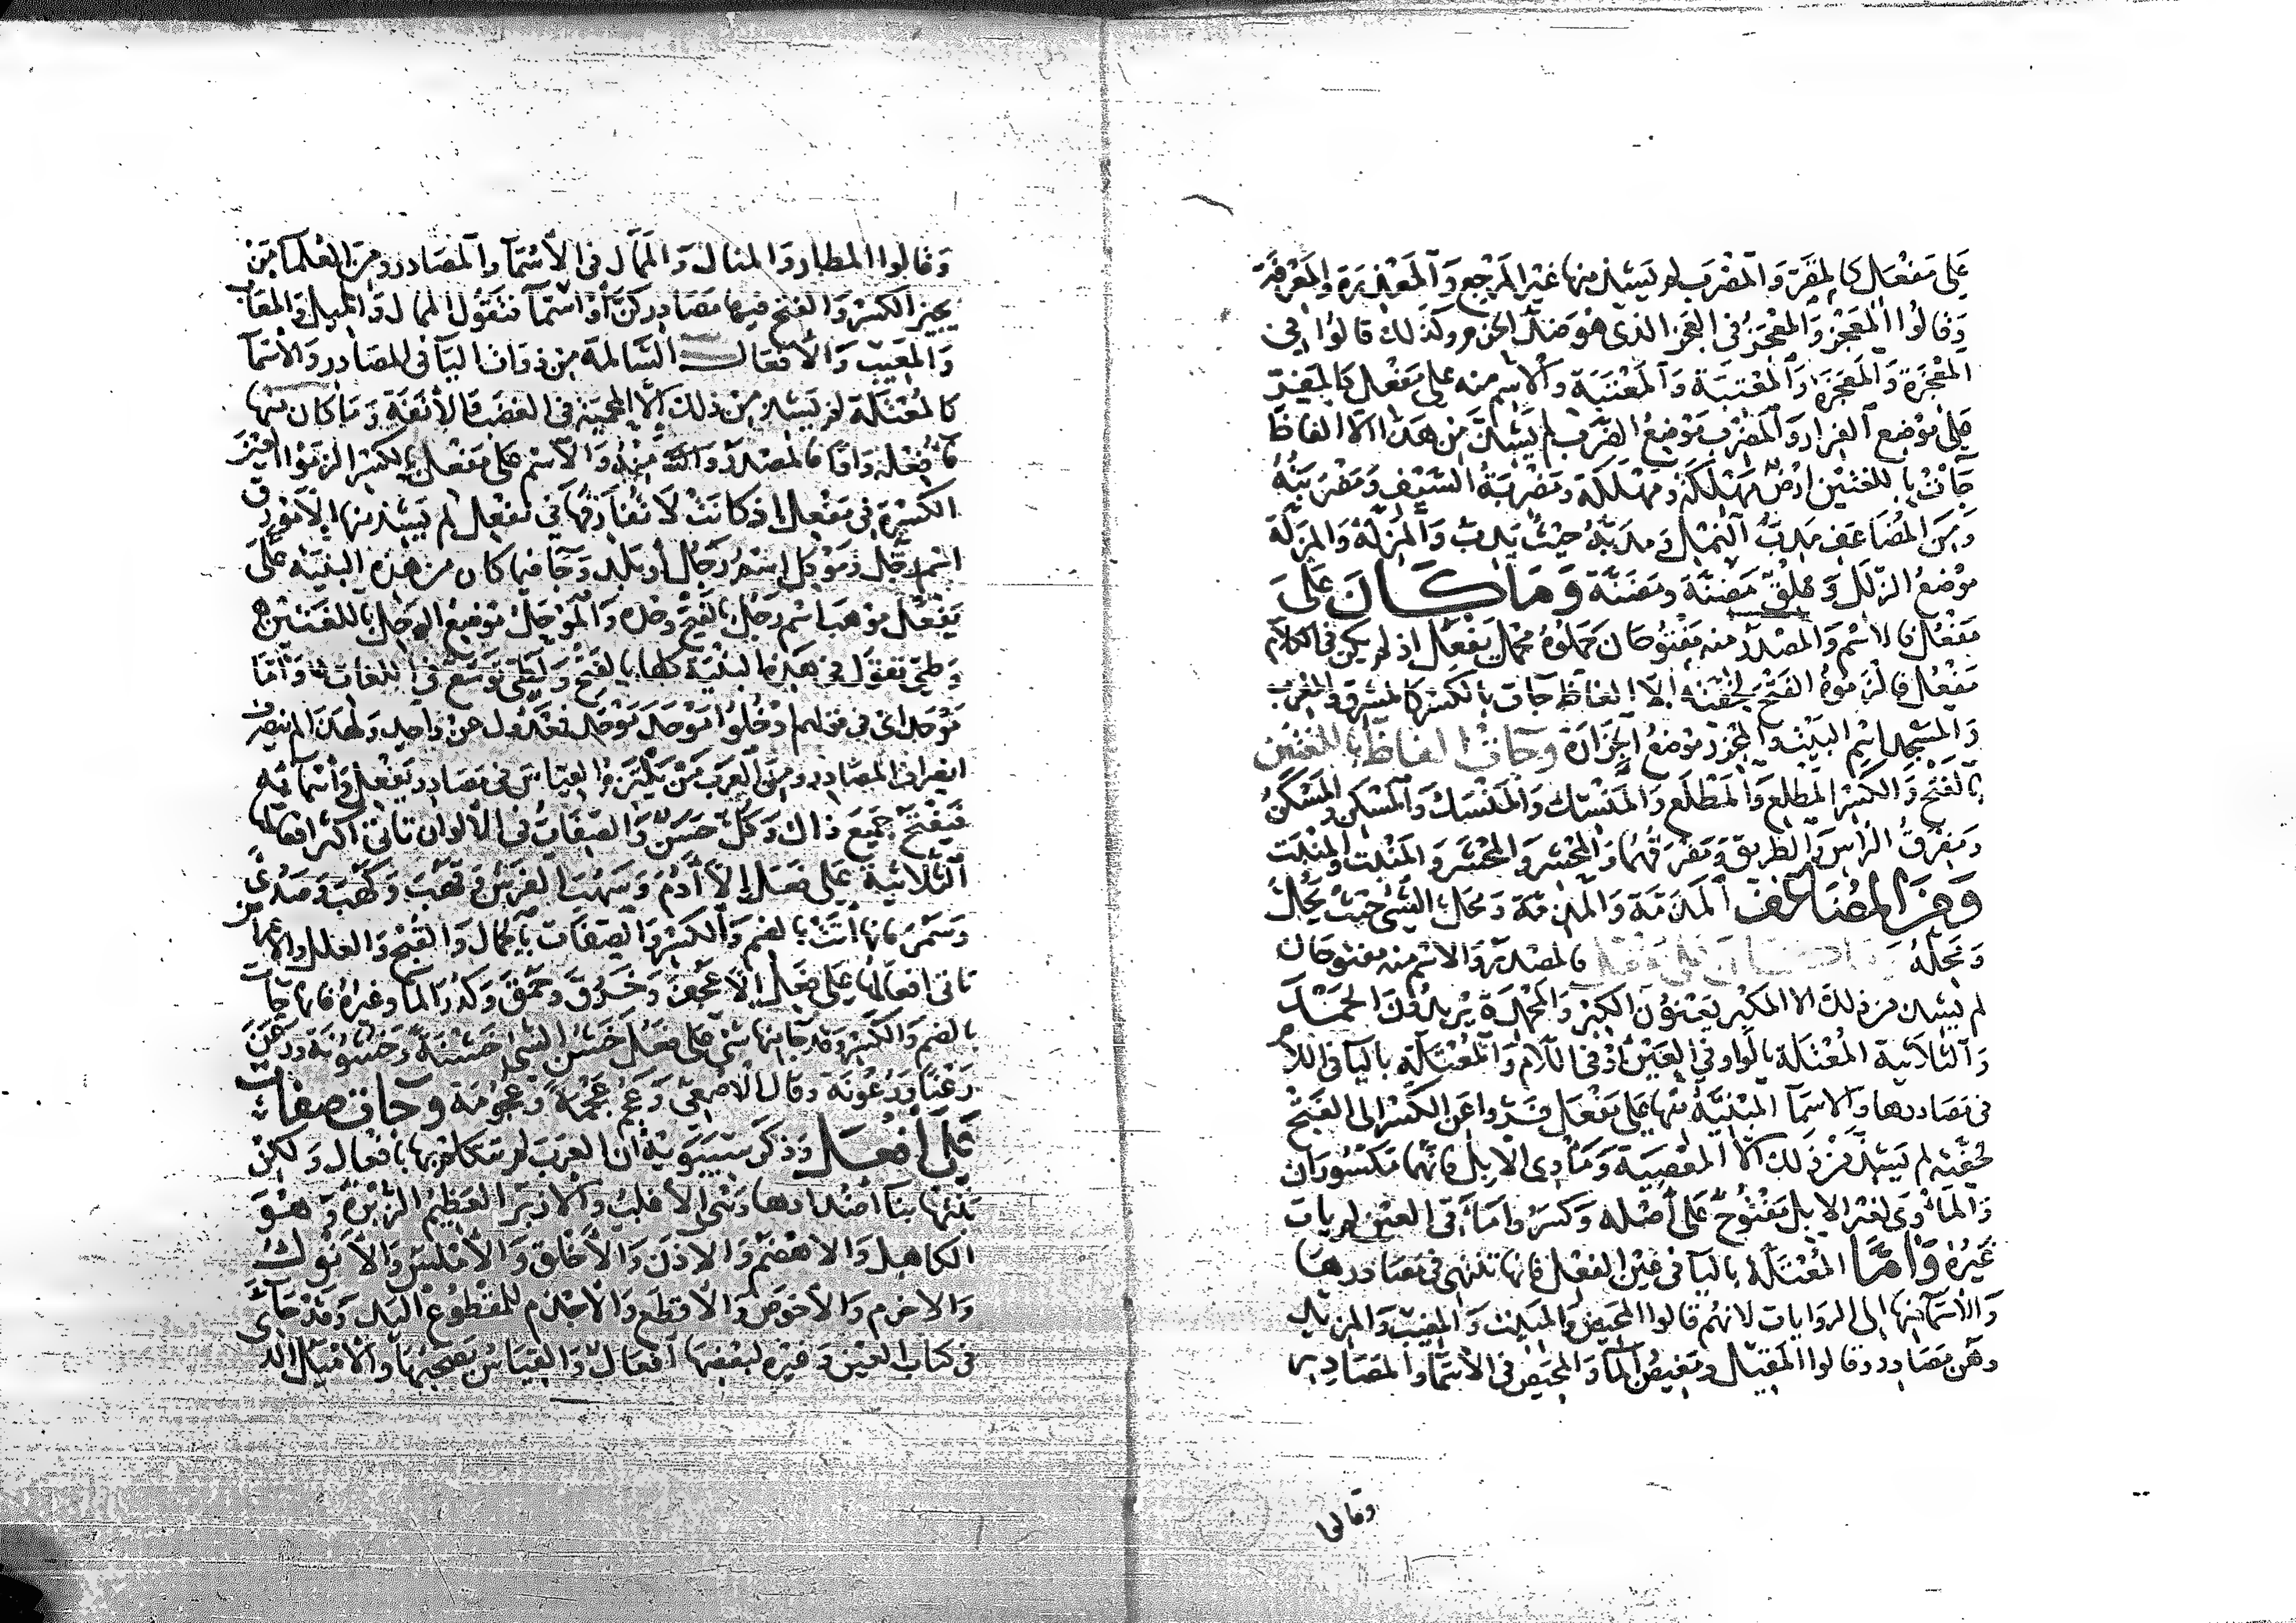 على مَفعَل كالمَفَرّ والمَضرَب لم يشذ منها غير المرجع والمعذرة والمعرفة
وقالوا المعجِز والمعجَز في العجز الذي هو ضد الحزم وكذلك قالوا في
المعجِزة والمعجَزة والمعتِبة والمعتَبة والاسم منه على مفعِل كالمفِرّ
على موضع الفرار والمضرِب موضع الضرب لم يشذ من هذا الا الفاظ
جاءت باللغتين ارض مهلِكة ومهلَكة ومضرِبة السيف ومضرَبته
ومن المضاعف مدب النمل ومدبه حيث يدب والمزِلة والمزَلة
موضع الزلل وعلق مضِنة ومضَنة وما كان على
مَفعُل فالاسم والمصدر منه مفتوحان حملوه محمل يفعل اذ لم يكن في الكلام
مفعُل فالزموه الفتح لخفته الا الفاظ جاءت بالكسر كالمشرق والمغرب
والمسجد اسم البيت والمجزر موضع الجزارة وجاءت الفاظ باللغتين
بالفتح والكسر المطلِع والمطلَع والمنسِك والمنسَك والمسكِن والمسكَن
ومفرِق الراس والطريق ومفرَقهما والمحشِر والمحشَر والمنبِت والمنبَت
ومن المضاعف المذَمة والمذِمة ومحل الشيء حيث يحل
ومحله وما كان على فعل فالمصدر والاسم منه مفتوحان
لم يشذ من ذلك الا المكبِر يعنون الكِبَر والمحمِدة يريدون الحمد
والثلاثية المعتلة بالواو في العين او في اللام والمعتلة بالياء في اللام
في مصادرها والاسماء المبنية منها على مفعَل فروا عن الكسر الى الفتح
لخفته لم يشذ من ذلك الا المعصية وماوي الابل فانهما مكسوران
والماوى لغير الابل مفتوح على اصله وكسروا ماقي العين لم يات
غيره واما المعتلة بالياء في عين الفعل فانها تنتهي في مصادرها
والاسماء منها الى الروايات لانهم قالوا المحيض والمبيت والمغيب والمزيد
وهن مصادر وقالوا المقيل ومغيض الماء والمحيض في الاسماء والمصادر
وقالوا
وقالوا المطار والمنال والممال في الاسماء والمصادر ومن العلماء من
يجيز الكسر والفتح فيها مصادر كن او اسماء فتقول الممال والمميل والمعاب
والمعيب والافعال السالمة من ذوات الياء في المصادر والاسماء
كالمعتلة لم يشذ من ذلك الا المحمية في الغضب والانفة وما كان منها
فاء فعله واوا فالمصدر منه والاسم على مفعِل بالكسر الزموا العين
الكسرة في مفعل اذ كانت لا تفارقها في يفعل لم يشذ منها الا مورق
اسم رجل وموكل اسم رجل او بلد وجاء فيما كان من هذه البنية على
يفعل موهب اسم رجل بالفتح وحده والموجل موضع الوجل باللغتين
وطيئ تقول في هذه البنية كلها بالفتح ولطيئ توسع في اللغات واما
موحد اي في قولهم ادخلوا موحد موحد فمعدول عن واحد ولهذا لم ينصرف
انصراف المصادر ومن العرب من يلتزم القياس في مصادر يفعل واسمائه
فيفتح جميع ذلك وكل حسن والصفات في الالوان تاتي اكثر افعالها
الثلاثية على فعل الا ادم وشهب الفرس وقهب وكهب وصدئ
وسمر فانها اتت بالضم والكسر والصفات بالجمال والقبح والعلل والاعراض
تاتي افعالها على فعل الا عجف وخرق وحمق وكدر الماء وغيره فانها جاءت
بالضم والكسر وقد جاء منها شيء على فعل خشن الشيء خشنة وخشونة ورعن
رعنا ورعونة وقال الاصمعي وعجم عجمة وعجومة وجاءت صفات
على افعل وذكر سيبويه ان العرب لم تتكلم بها بافعال ولكن
بنتها بناء اضدادها وهي الاغلب والازبر العظيم الزبرة وهو
الكاهل والاهضم والاذن والاخلق والاملس والانوك
والاخرم والاخوص والاقطع والاجذم للمقطوع اليد وقد جاءت
في كتاب العين وغيره لبعضها افعال والقياس يصحبها والاميل الذي